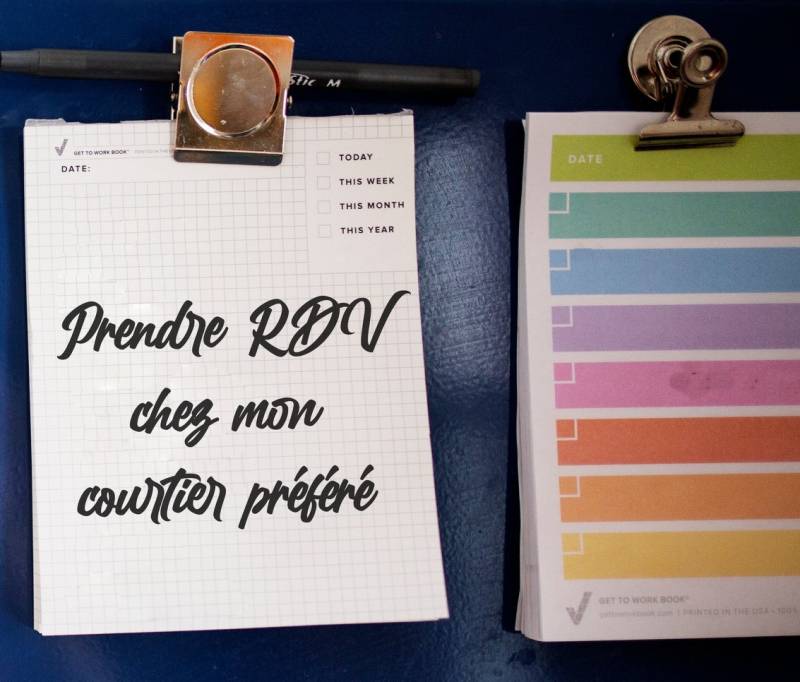 stic M
GET TO WORK BOOK™
DATE:
TODAY
THIS WEEK
THIS MONTH
THIS YEAR
Prendre RDV
chez mon
courtier préféré
DATE
GET TO WORK BOOK®
gettoworkbook.com | PRINTED IN THE USA • 100%